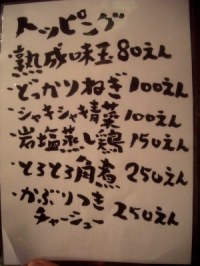 トッピング
・熟成味玉 80えん
・どっかりねぎ 100えん
・シャキシャキ精菜 100えん
・岩塩蒸し鶏 150えん
・とろとろ角煮 250えん
・かぶりつき
チャーシュー 250えん